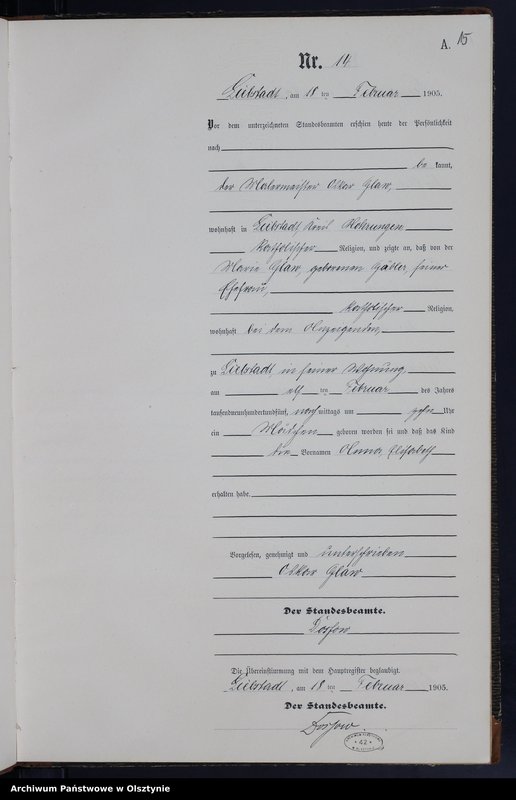 A. 15
Nr. 14
Liebstadt, am 18 ten Februar 1905.
Vor dem unterzeichneten Standesbeamten erschien heute der Persönlichkeit
nach
be kannt,
der Malermeister Oskar Glaw,
wohnhaft in Liebstadt, Kreis Mohrungen
katholischer Religion, und zeigte an, daß von der
Marie Glaw, geborenen seiner
Ehefrau,
katholischer Religion,
wohnhaft bei dem Anzeigenden,
zu Liebstadt, in seiner Wohnung,
am elf ten Februar des Jahres
tausendneunhundertundfünf, nachmittags um zehn Uhr
ein Mädchen geboren worden sei und daß das Kind
die Vornamen Anna Elisabeth
erhalten habe.
Vorgelesen, genehmigt und unterschrieben
Oskar Glaw
Der Standesbeamte.
Die Übereinstimmung mit dem Hauptregister beglaubigt.
Liebstadt, am 18 ten Februar 1905.
Der Standesbeamte.
42
Archiwum Państwowe w Olsztynie